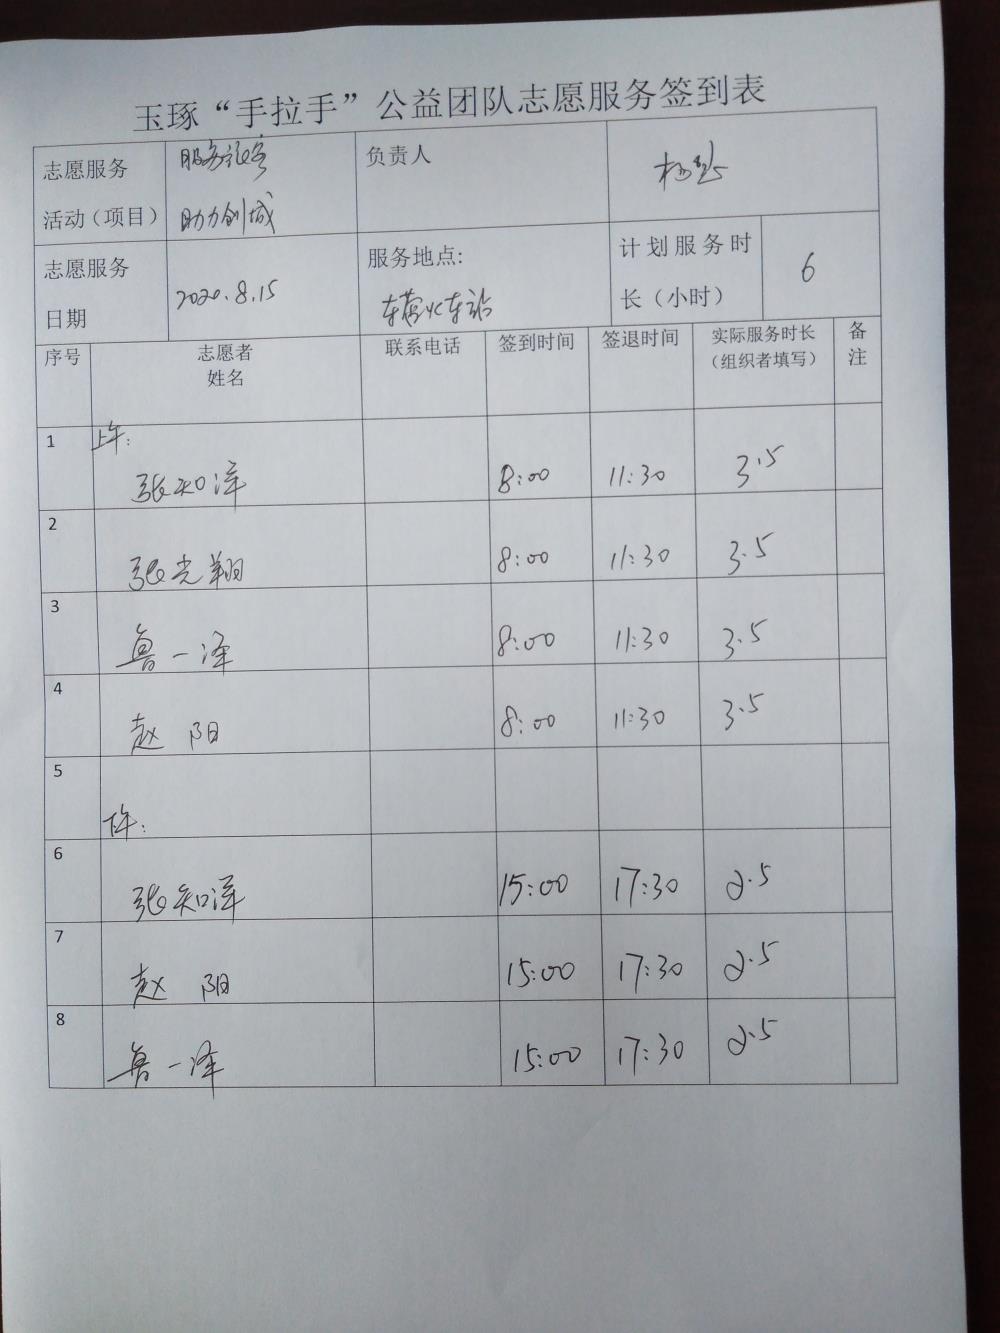 玉琢“手拉手”公益团队志愿服务签到表
志愿服务
活动（项目）
服务
助力创城
负责人
志愿服务
日期
2020.8.15
服务地点:
东营火车站
计划服务时
长（小时）
6
序号 志愿者 姓名 联系电话 签到时间 签退时间 实际服务时长 （组织者填写） 备注
1 上午:
张知泽 8:00 11:30 3.5
2 张光翔 8:00 11:30 3.5
3 鲁一泽 8:00 11:30 3.5
4 赵阳 8:00 11:30 3.5
5
下午:
6 张知泽 15:00 17:30 2.5
7 赵阳 15:00 17:30 2.5
8 鲁一泽 15:00 17:30 2.5